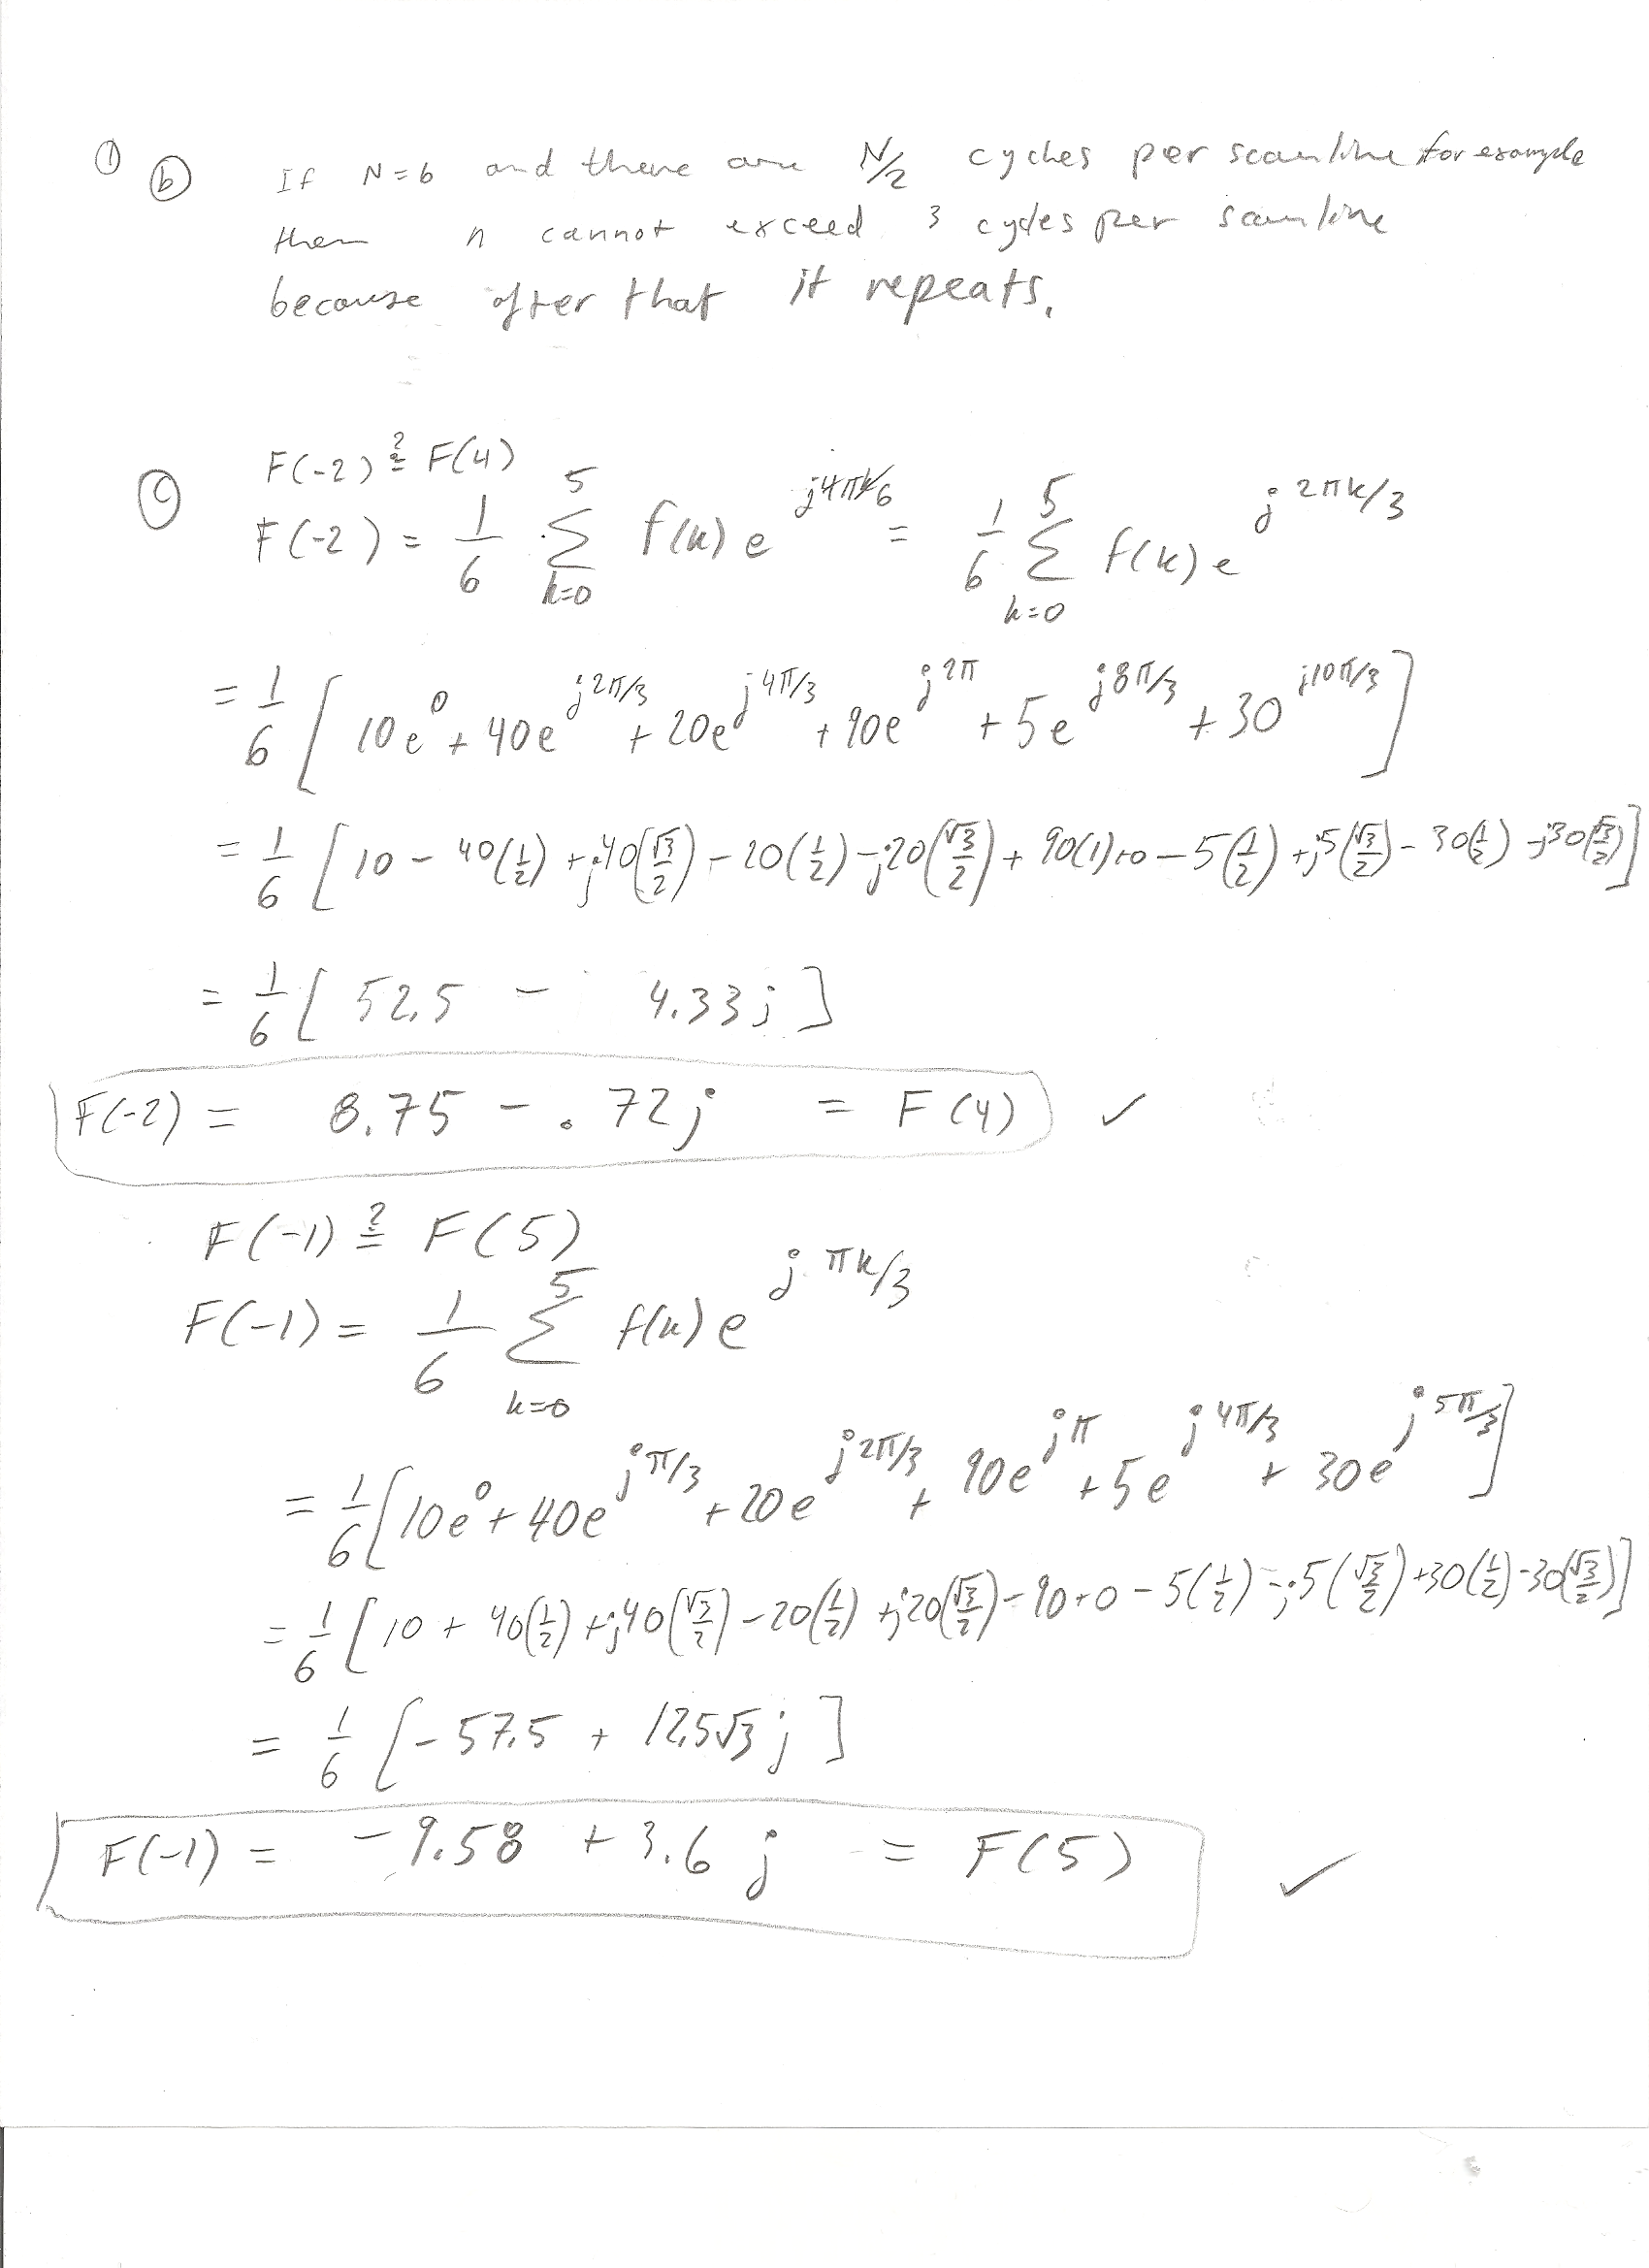 ① ⓑ If N=6 and there are N/2 cycles per scanline for example
then n cannot exceed 3 cycles per scanline
because after that it repeats.
ⓒ F(-2) ≟ F(4)
F(-2) = 1/6 Σ_{k=0}^{5} f(k) e^{j4πk/6} = 1/6 Σ_{k=0}^{5} f(k) e^{j2πk/3}
= 1/6 [ 10e^0 + 40e^{j2π/3} + 20e^{j4π/3} + 90e^{j2π} + 5e^{j8π/3} + 30^{j10π/3} ]
= 1/6 [ 10 - 40(1/2) + j40(√3/2) - 20(1/2) - j20(√3/2) + 90(1) + 0 - 5(1/2) + j5(√3/2) - 30(1/2) - j30(√3/2) ]
= 1/6 [ 52.5 - 4.33j ]
F(-2) = 8.75 - .72j = F(4) ✓
F(-1) ≟ F(5)
F(-1) = 1/6 Σ_{k=0}^{5} f(k) e^{jπk/3}
= 1/6 [ 10e^0 + 40e^{jπ/3} + 20e^{j2π/3} + 90e^{jπ} + 5e^{j4π/3} + 30e^{j5π/3} ]
= 1/6 [ 10 + 40(1/2) + j40(√3/2) - 20(1/2) + j20(√3/2) - 90 + 0 - 5(1/2) - j5(√3/2) + 30(1/2) - 30(√3/2) ]
= 1/6 [ -57.5 + 12.5√3 j ]
F(-1) = -9.58 + 3.6j = F(5) ✓